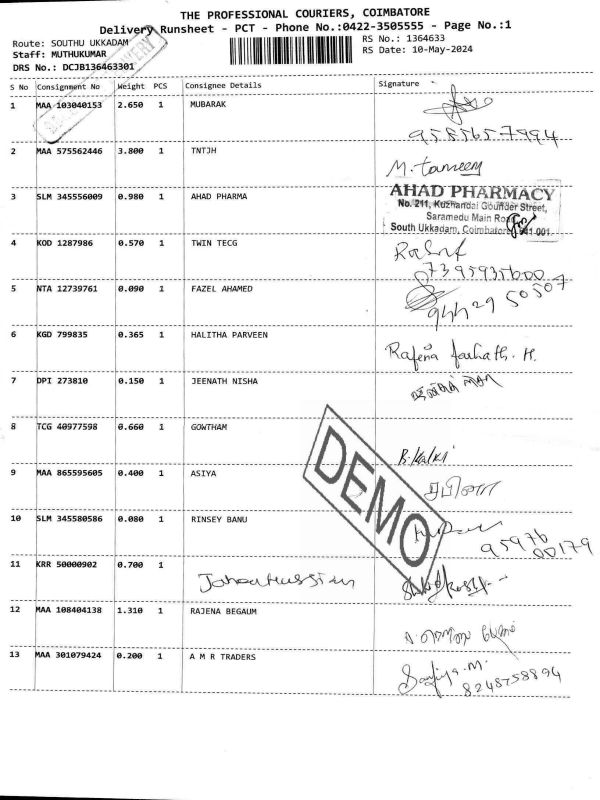 THE PROFESSIONAL COURIERS, COIMBATORE
Delivery Runsheet - PCT - Phone No.:0422-3505555 - Page No.:1
Route: SOUTHU UKKADAM
RS No.: 1364633
Staff: MUTHUKUMAR
RS Date: 10-May-2024
DRS No.: DCJB136463301
S No Consignment No Weight PCS Consignee Details Signature
1 MAA 103040153 2.650 1 MUBARAK
9585657994
2 MAA 575562446 3.800 1 TNTJH M. tameem
3 SLM 345556009 0.980 1 AHAD PHARMA
AHAD PHARMACY
No. 211, Kuzhandai Gounder Street,
Saramedu Main Road
South Ukkadam, Coimbatore 641 001
4 KOD 1287986 0.570 1 TWIN TECG
7395935600
5 NTA 12739761 0.090 1 FAZEL AHAMED
9442950507
6 KGD 799835 0.365 1 HALITHA PARVEEN
Rafena farhath. H.
7 DPI 273810 0.150 1 JEENATH NISHA
8 TCG 40977598 0.660 1 GOWTHAM
B. Kalki
9 MAA 865595605 0.400 1 ASIYA
சபினா
DEMO
10 SLM 345580586 0.080 1 RINSEY BANU
95976
00179
11 KRR 50000902 0.700 1
12 MAA 108404138 1.310 1 RAJENA BEGAUM
13 MAA 301079424 0.200 1 A M R TRADERS
8248758894